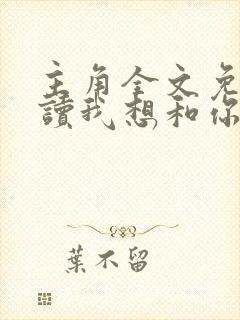 主角全文免
讀我想和你
葉不留